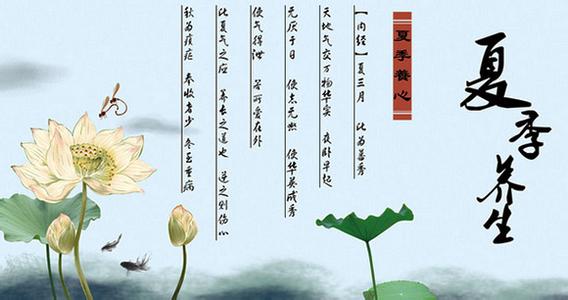 夏季养生
夏季養心
【内经】夏三月 此为蕃秀
天地气交万物华实 夜卧早起
无厌于日 使志无怒 使华英成秀
使气得泄 若所爱在外
此夏气之应 养长之道也 逆之则伤心
秋为痎疟 奉收者少 冬至重病